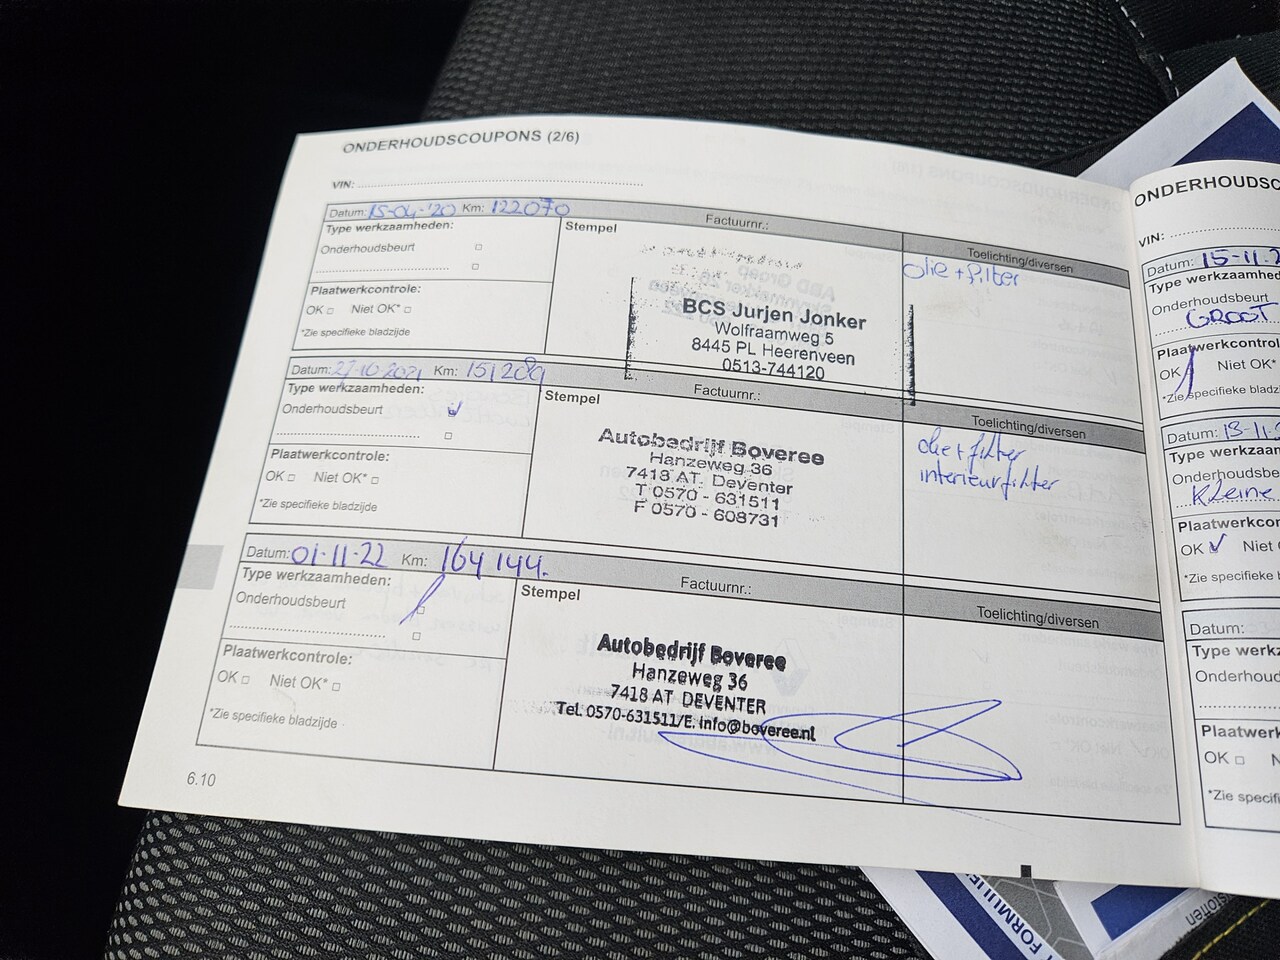 ONDERHOUDSCOUPONS (2/6)
VIN:
Datum: 15-04-'20 Km: 122070 Factuurnr.:
Type werkzaamheden:
Onderhoudsbeurt
Plaatwerkcontrole:
OK □ Niet OK* □
*Zie specifieke bladzijde
Stempel
BCS Jurjen Jonker
Wolfraamweg 5
8445 PL Heerenveen
0513-744120
Toelichting/diversen
olie + filter
Datum: 27-10-2021 Km: 151289 Factuurnr.:
Type werkzaamheden:
Onderhoudsbeurt
Plaatwerkcontrole:
OK □ Niet OK* □
*Zie specifieke bladzijde
Stempel
Autobedrijf Boveree
Hanzeweg 36
7418 AT. Deventer
T 0570 - 631511
F 0570 - 608731
Toelichting/diversen
olie + filter
interieurfilter
Datum: 01-11-22 Km: 164144. Factuurnr.:
Type werkzaamheden:
Onderhoudsbeurt
Plaatwerkcontrole:
OK □ Niet OK* □
*Zie specifieke bladzijde
Stempel
Autobedrijf Boveree
Hanzeweg 36
7418 AT DEVENTER
Tel. 0570-631511/E. info@boveree.nl
Toelichting/diversen
6.10
VIN:
Datum: 15-11-2
Type werkzaamhed
Onderhoudsbeurt
GROOT
OK Niet OK*
Datum:
Type werkzaam
Onderhoudsbe
Kleine
Plaatwerkcor
OK Niet
*Zie specifie
Datum:
Type werkza
Onderhoud
Plaatwerk
OK □
*Zie specifi
FORMULIE